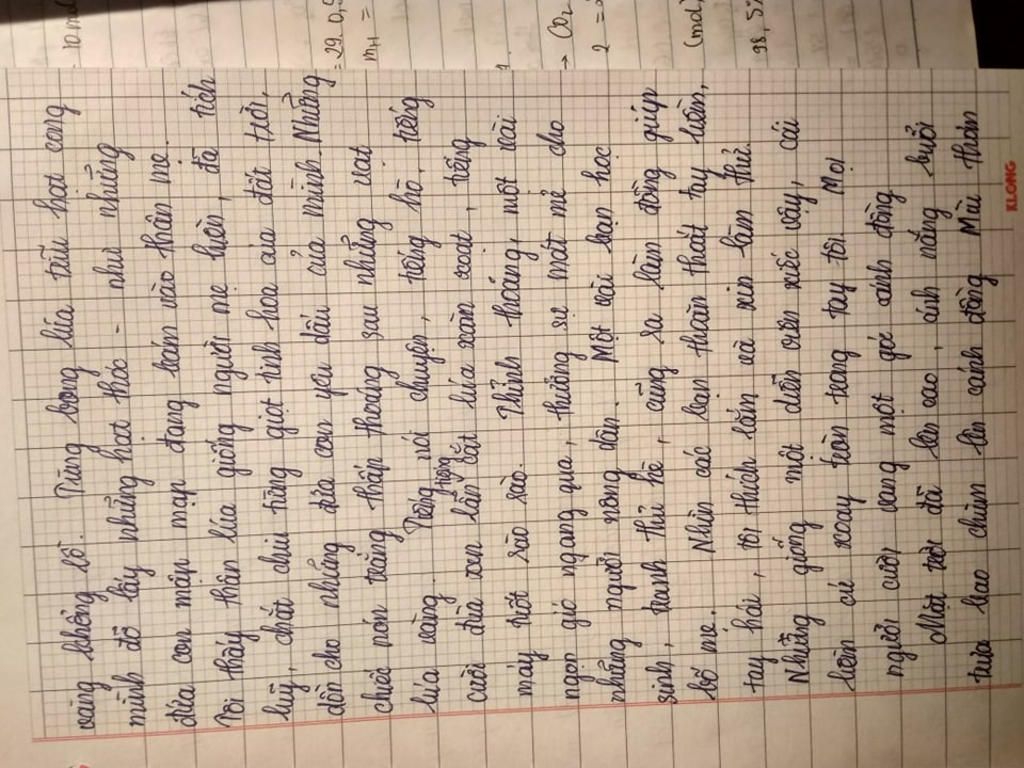 vàng khổng lồ. Từng bông lúa trĩu hạt căng
mình đỡ lấy những hạt thóc - như những
đứa con mập mạp đang bám vào thân mẹ.
Tôi thấy thân lúa giống người mẹ luôn, đã tích
luỹ, chắt chiu từng giọt tinh hoa của đất trời,
dồn cho những đứa con yêu dấu của mình. Những
chiếc nón trắng thấp thoáng sau những vạt
lúa vàng. Tiếng nói chuyện, tiếng hò, tiếng
cười đùa xen lẫn tiếng cắt lúa xoàn xoạt, tiếng
máy tuốt rào rào. Thỉnh thoảng, một vài
ngọn gió ngang qua, thưởng sự mát mẻ cho
những người nông dân. Một vài bạn học
sinh, tranh thủ hè, cũng ra làm đồng giúp
bố mẹ. Nhìn các bạn thoăn thoắt tay liềm,
tay hái, tôi thích lắm và xin làm thử.
Nhưng giống một diễn viên xiếc vậy, cái
liềm cứ xoay tròn trong tay tôi. Mọi
người cười vang một góc cánh đồng.
Mặt trời đã lên cao, ánh nắng buổi
trưa bao chùm lên cánh đồng. Mùi thơm
KLONG
10 mol
= 29.0,5
→ CO₂
2 =
(mol)
98,5%